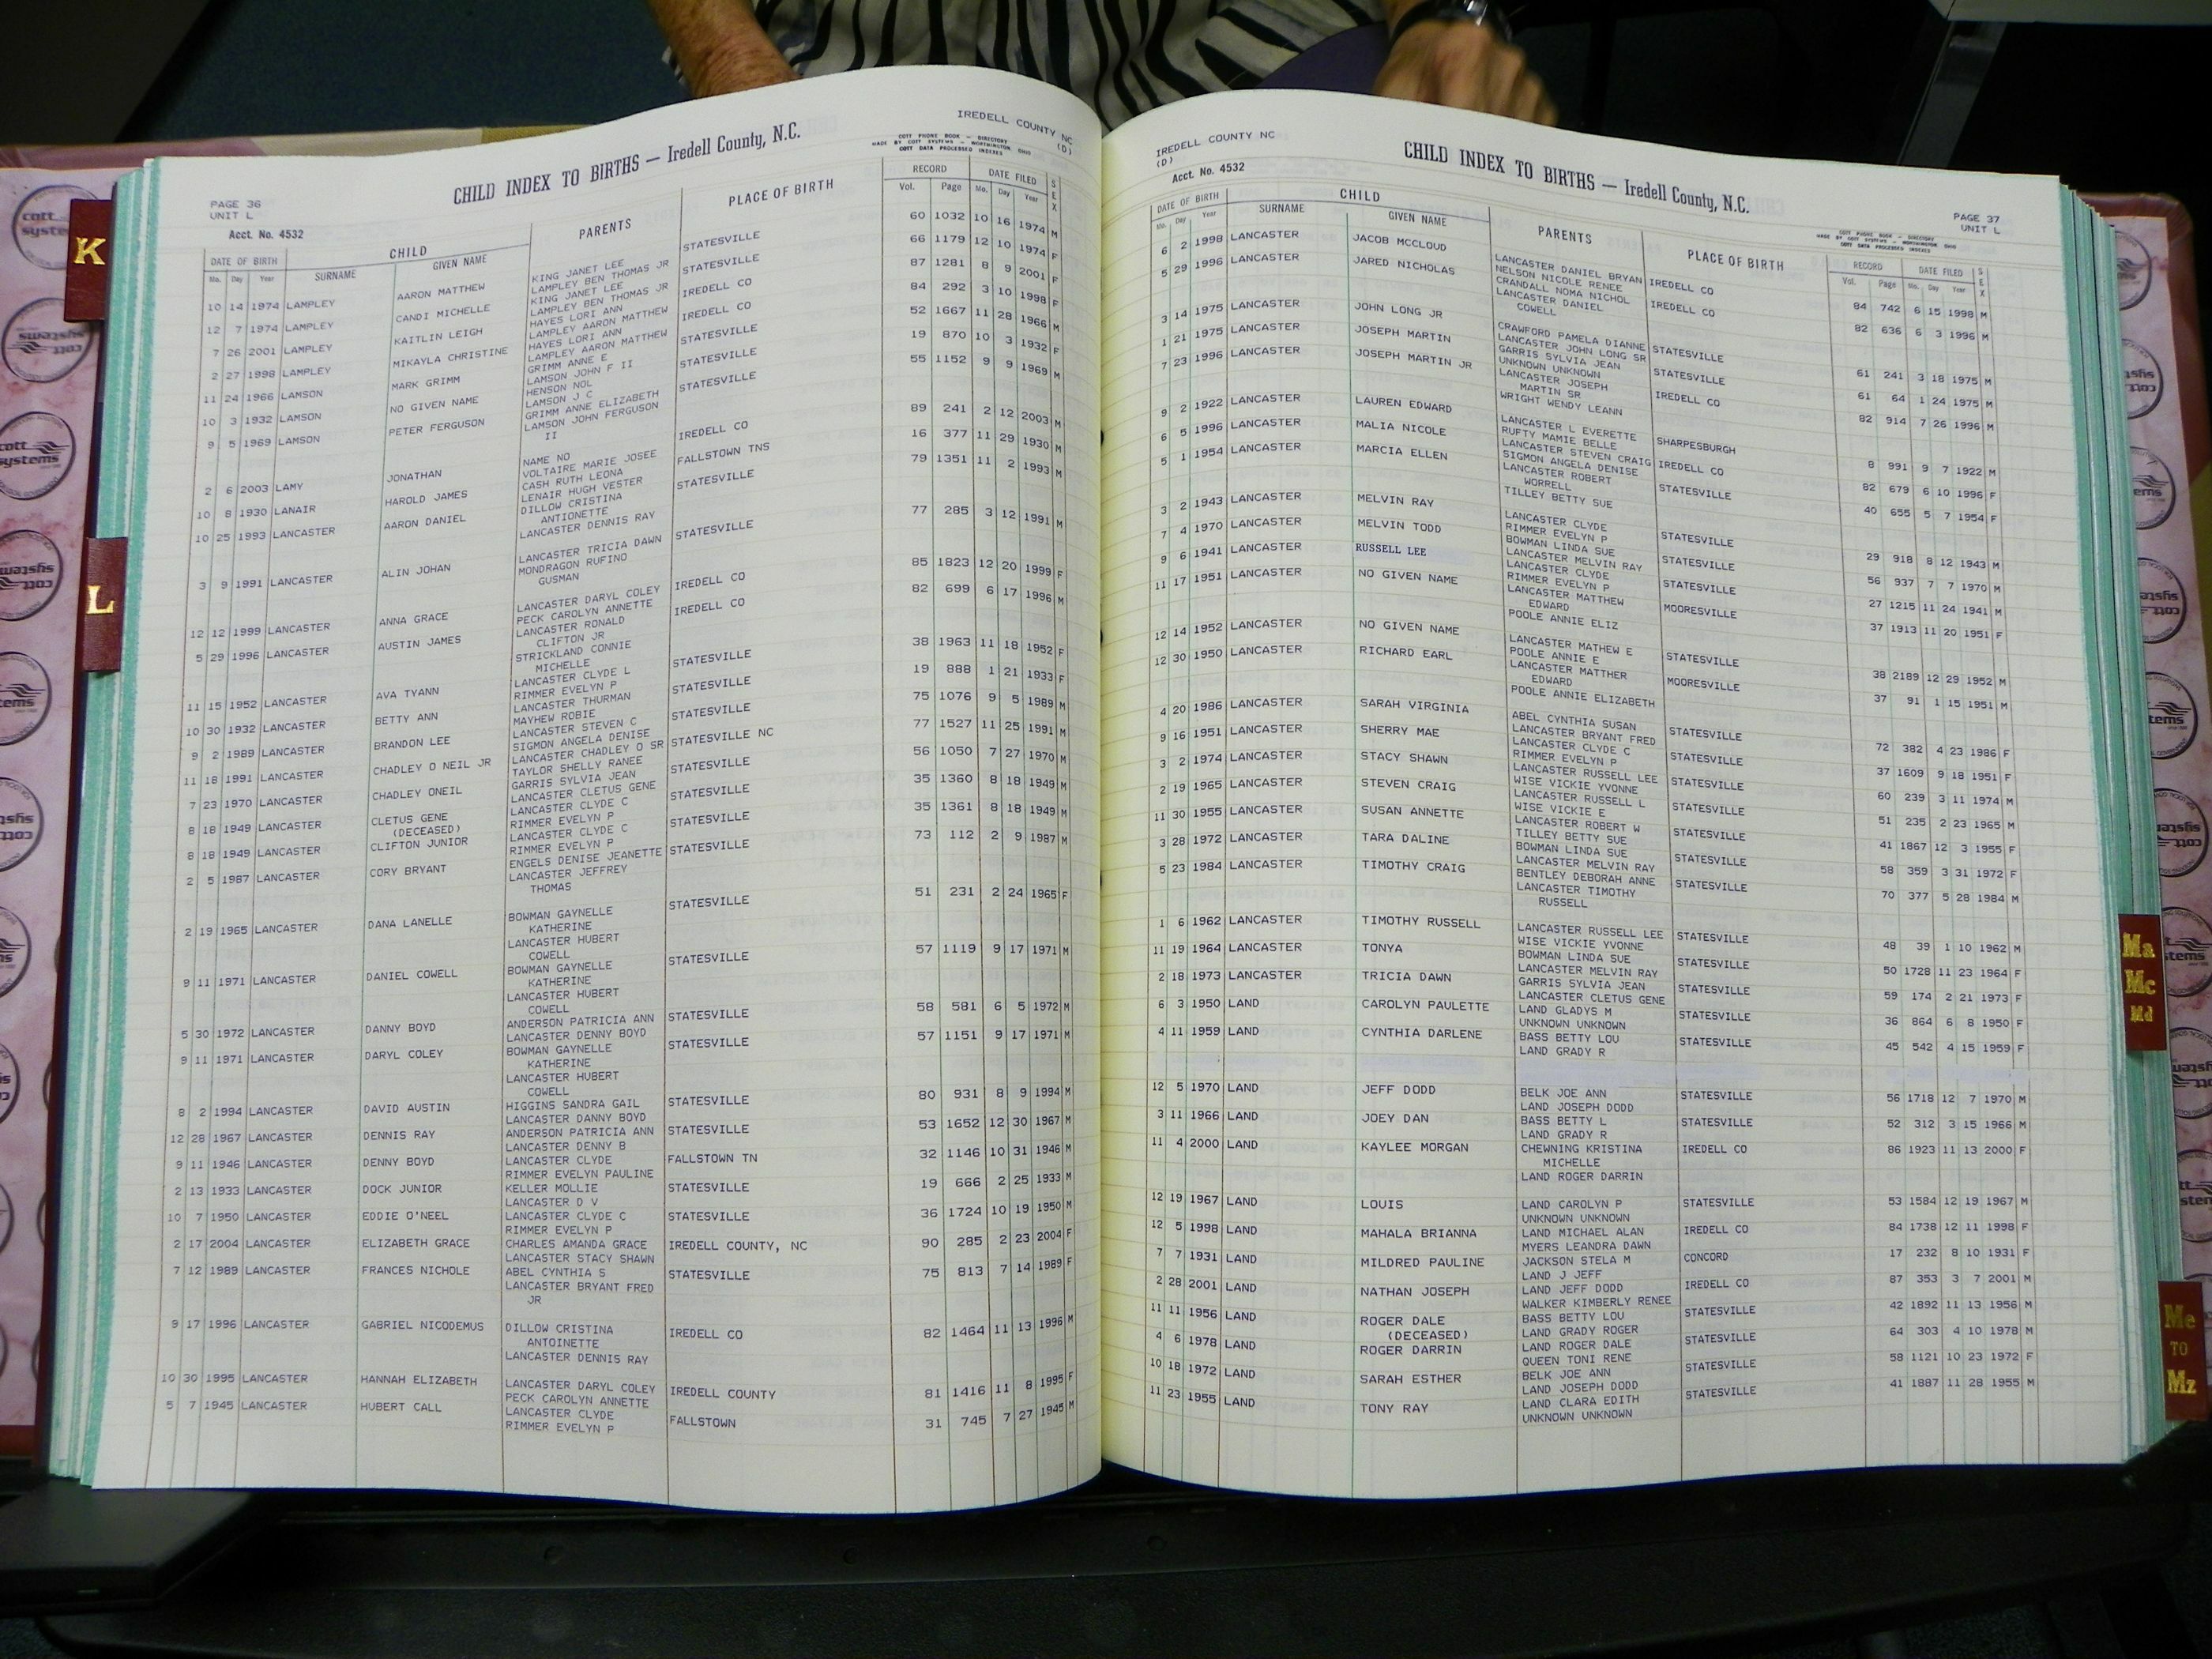 IREDELL COUNTY NC
(D)
CHILD INDEX TO BIRTHS — Iredell County, N.C.
COTT PHONE BOOK — DIRECTORY
MADE BY COTT SYSTEMS — WORTHINGTON, OHIO
COTT DATA PROCESSED INDEXES
PAGE 36
UNIT L
Acct. No. 4532
DATE OF BIRTH CHILD PARENTS PLACE OF BIRTH RECORD DATE FILED SEX
Mo. Day Year SURNAME GIVEN NAME Vol. Page Mo. Day Year
10 14 1974 LAMPLEY AARON MATTHEW KING JANET LEE STATESVILLE 60 1032 10 16 1974 M
LAMPLEY BEN THOMAS JR
12 7 1974 LAMPLEY CANDI MICHELLE KING JANET LEE STATESVILLE 66 1179 12 10 1974 F
LAMPLEY BEN THOMAS JR
7 26 2001 LAMPLEY KAITLIN LEIGH HAYES LORI ANN IREDELL CO 87 1281 8 9 2001 F
LAMPLEY AARON MATTHEW
2 27 1998 LAMPLEY MIKAYLA CHRISTINE HAYES LORI ANN IREDELL CO 84 292 3 10 1998 F
LAMPLEY AARON MATTHEW
11 24 1966 LAMSON MARK GRIMM GRIMM ANNE E STATESVILLE 52 1667 11 28 1966 M
LAMSON JOHN F II
10 3 1932 LAMSON NO GIVEN NAME HENSON NOL STATESVILLE 19 870 10 3 1932 F
LAMSON J C
9 5 1969 LAMSON PETER FERGUSON GRIMM ANNE ELIZABETH STATESVILLE 55 1152 9 9 1969 M
LAMSON JOHN FERGUSON
II
2 6 2003 LAMY JONATHAN NAME NO IREDELL CO 89 241 2 12 2003 M
VOLTAIRE MARIE JOSEE
10 8 1930 LANAIR HAROLD JAMES CASH RUTH LEONA FALLSTOWN TNS 16 377 11 29 1930 M
LENAIR HUGH VESTER
10 25 1993 LANCASTER AARON DANIEL DILLOW CRISTINA STATESVILLE 79 1351 11 2 1993 M
ANTIONETTE
LANCASTER DENNIS RAY
3 9 1991 LANCASTER ALIN JOHAN LANCASTER TRICIA DAWN STATESVILLE 77 285 3 12 1991 M
MONDRAGON RUFINO
GUSMAN
12 12 1999 LANCASTER ANNA GRACE LANCASTER DARYL COLEY IREDELL CO 85 1823 12 20 1999 F
PECK CAROLYN ANNETTE
5 29 1996 LANCASTER AUSTIN JAMES LANCASTER RONALD IREDELL CO 82 699 6 17 1996 M
CLIFTON JR
STRICKLAND CONNIE
MICHELLE
11 15 1952 LANCASTER AVA TYANN LANCASTER CLYDE L STATESVILLE 38 1963 11 18 1952 F
RIMMER EVELYN P
10 30 1932 LANCASTER BETTY ANN LANCASTER THURMAN STATESVILLE 19 888 1 21 1933 F
MAYHEW ROBIE
9 2 1989 LANCASTER BRANDON LEE LANCASTER STEVEN C STATESVILLE 75 1076 9 5 1989 M
SIGMON ANGELA DENISE
11 18 1991 LANCASTER CHADLEY O NEIL JR LANCASTER CHADLEY O SR STATESVILLE NC 77 1527 11 25 1991 M
TAYLOR SHELLY RANEE
7 23 1970 LANCASTER CHADLEY ONEIL GARRIS SYLVIA JEAN STATESVILLE 56 1050 7 27 1970 M
LANCASTER CLETUS GENE
8 18 1949 LANCASTER CLETUS GENE LANCASTER CLYDE C STATESVILLE 35 1360 8 18 1949 M
(DECEASED) RIMMER EVELYN P
8 18 1949 LANCASTER CLIFTON JUNIOR LANCASTER CLYDE C STATESVILLE 35 1361 8 18 1949 M
RIMMER EVELYN P
2 5 1987 LANCASTER CORY BRYANT ENGELS DENISE JEANETTE STATESVILLE 73 112 2 9 1987 M
LANCASTER JEFFREY
THOMAS
2 19 1965 LANCASTER DANA LANELLE BOWMAN GAYNELLE STATESVILLE 51 231 2 24 1965 F
KATHERINE
LANCASTER HUBERT
COWELL
9 11 1971 LANCASTER DANIEL COWELL BOWMAN GAYNELLE STATESVILLE 57 1119 9 17 1971 M
KATHERINE
LANCASTER HUBERT
COWELL
5 30 1972 LANCASTER DANNY BOYD ANDERSON PATRICIA ANN STATESVILLE 58 581 6 5 1972 M
LANCASTER DENNY BOYD
9 11 1971 LANCASTER DARYL COLEY BOWMAN GAYNELLE STATESVILLE 57 1151 9 17 1971 M
KATHERINE
LANCASTER HUBERT
COWELL
8 2 1994 LANCASTER DAVID AUSTIN HIGGINS SANDRA GAIL STATESVILLE 80 931 8 9 1994 M
LANCASTER DANNY BOYD
12 28 1967 LANCASTER DENNIS RAY ANDERSON PATRICIA ANN STATESVILLE 53 1652 12 30 1967 M
LANCASTER DENNY B
9 11 1946 LANCASTER DENNY BOYD LANCASTER CLYDE FALLSTOWN TN 32 1146 10 31 1946 M
RIMMER EVELYN PAULINE
2 13 1933 LANCASTER DOCK JUNIOR KELLER MOLLIE STATESVILLE 19 666 2 25 1933 M
LANCASTER D V
10 7 1950 LANCASTER EDDIE O'NEEL LANCASTER CLYDE C STATESVILLE 36 1724 10 19 1950 M
RIMMER EVELYN P
2 17 2004 LANCASTER ELIZABETH GRACE CHARLES AMANDA GRACE IREDELL COUNTY, NC 90 285 2 23 2004 F
LANCASTER STACY SHAWN
7 12 1989 LANCASTER FRANCES NICHOLE ABEL CYNTHIA S STATESVILLE 75 813 7 14 1989 F
LANCASTER BRYANT FRED
JR
9 17 1996 LANCASTER GABRIEL NICODEMUS DILLOW CRISTINA IREDELL CO 82 1464 11 13 1996 M
ANTOINETTE
LANCASTER DENNIS RAY
10 30 1995 LANCASTER HANNAH ELIZABETH LANCASTER DARYL COLEY IREDELL COUNTY 81 1416 11 8 1995 F
PECK CAROLYN ANNETTE
5 7 1945 LANCASTER HUBERT CALL LANCASTER CLYDE FALLSTOWN 31 745 7 27 1945 M
RIMMER EVELYN P
IREDELL COUNTY NC
(D)
Acct. No. 4532
CHILD INDEX TO BIRTHS — Iredell County, N.C.
PAGE 37
UNIT L
COTT PHONE BOOK — DIRECTORY
MADE BY COTT SYSTEMS — WORTHINGTON, OHIO
COTT DATA PROCESSED INDEXES
DATE OF BIRTH CHILD PARENTS PLACE OF BIRTH RECORD DATE FILED SEX
Mo. Day Year SURNAME GIVEN NAME Vol. Page Mo. Day Year
6 2 1998 LANCASTER JACOB MCCLOUD LANCASTER DANIEL BRYAN IREDELL CO 84 742 6 15 1998 M
NELSON NICOLE RENEE
5 29 1996 LANCASTER JARED NICHOLAS CRANDALL NOMA NICHOL IREDELL CO 82 636 6 3 1996 M
LANCASTER DANIEL
COWELL
3 14 1975 LANCASTER JOHN LONG JR CRAWFORD PAMELA DIANNE STATESVILLE 61 241 3 18 1975 M
LANCASTER JOHN LONG SR
1 21 1975 LANCASTER JOSEPH MARTIN GARRIS SYLVIA JEAN STATESVILLE 61 64 1 24 1975 M
UNKNOWN UNKNOWN
7 23 1996 LANCASTER JOSEPH MARTIN JR LANCASTER JOSEPH IREDELL CO 82 914 7 26 1996 M
MARTIN SR
WRIGHT WENDY LEANN
9 2 1922 LANCASTER LAUREN EDWARD LANCASTER L EVERETTE SHARPESBURGH 8 991 9 7 1922 M
RUFTY MAMIE BELLE
6 5 1996 LANCASTER MALIA NICOLE LANCASTER STEVEN CRAIG IREDELL CO 82 679 6 10 1996 F
SIGMON ANGELA DENISE
5 1 1954 LANCASTER MARCIA ELLEN LANCASTER ROBERT STATESVILLE 40 655 5 7 1954 F
WORRELL
TILLEY BETTY SUE
3 2 1943 LANCASTER MELVIN RAY LANCASTER CLYDE STATESVILLE 29 918 8 12 1943 M
RIMMER EVELYN P
7 4 1970 LANCASTER MELVIN TODD BOWMAN LINDA SUE STATESVILLE 56 937 7 7 1970 M
LANCASTER MELVIN RAY
9 6 1941 LANCASTER RUSSELL LEE LANCASTER CLYDE MOORESVILLE 27 1215 11 24 1941 M
RIMMER EVELYN P
11 17 1951 LANCASTER NO GIVEN NAME LANCASTER MATTHEW 37 1913 11 20 1951 F
EDWARD
POOLE ANNIE ELIZ
12 14 1952 LANCASTER NO GIVEN NAME LANCASTER MATHEW E STATESVILLE 38 2189 12 29 1952 M
POOLE ANNIE E
12 30 1950 LANCASTER RICHARD EARL LANCASTER MATTHER MOORESVILLE 37 91 1 15 1951 M
EDWARD
POOLE ANNIE ELIZABETH
4 20 1986 LANCASTER SARAH VIRGINIA ABEL CYNTHIA SUSAN STATESVILLE 72 382 4 23 1986 F
LANCASTER BRYANT FRED
9 16 1951 LANCASTER SHERRY MAE LANCASTER CLYDE C STATESVILLE 37 1609 9 18 1951 F
RIMMER EVELYN P
3 2 1974 LANCASTER STACY SHAWN LANCASTER RUSSELL LEE STATESVILLE 60 239 3 11 1974 M
WISE VICKIE YVONNE
2 19 1965 LANCASTER STEVEN CRAIG LANCASTER RUSSELL L STATESVILLE 51 235 2 23 1965 M
WISE VICKIE E
11 30 1955 LANCASTER SUSAN ANNETTE LANCASTER ROBERT W STATESVILLE 41 1867 12 3 1955 F
TILLEY BETTY SUE
3 28 1972 LANCASTER TARA DALINE BOWMAN LINDA SUE STATESVILLE 58 359 3 31 1972 F
LANCASTER MELVIN RAY
5 23 1984 LANCASTER TIMOTHY CRAIG BENTLEY DEBORAH ANNE STATESVILLE 70 377 5 28 1984 M
LANCASTER TIMOTHY
RUSSELL
1 6 1962 LANCASTER TIMOTHY RUSSELL LANCASTER RUSSELL LEE STATESVILLE 48 39 1 10 1962 M
WISE VICKIE YVONNE
11 19 1964 LANCASTER TONYA BOWMAN LINDA SUE STATESVILLE 50 1728 11 23 1964 F
LANCASTER MELVIN RAY
2 18 1973 LANCASTER TRICIA DAWN GARRIS SYLVIA JEAN STATESVILLE 59 174 2 21 1973 F
LANCASTER CLETUS GENE
6 3 1950 LAND CAROLYN PAULETTE LAND GLADYS M STATESVILLE 36 864 6 8 1950 F
UNKNOWN UNKNOWN
4 11 1959 LAND CYNTHIA DARLENE BASS BETTY LOU STATESVILLE 45 542 4 15 1959 F
LAND GRADY R
12 5 1970 LAND JEFF DODD BELK JOE ANN STATESVILLE 56 1718 12 7 1970 M
LAND JOSEPH DODD
3 11 1966 LAND JOEY DAN BASS BETTY L STATESVILLE 52 312 3 15 1966 M
LAND GRADY R
11 4 2000 LAND KAYLEE MORGAN CHEWNING KRISTINA IREDELL CO 86 1923 11 13 2000 F
MICHELLE
LAND ROGER DARRIN
12 19 1967 LAND LOUIS LAND CAROLYN P STATESVILLE 53 1584 12 19 1967 M
UNKNOWN UNKNOWN
12 5 1998 LAND MAHALA BRIANNA LAND MICHAEL ALAN IREDELL CO 84 1738 12 11 1998 F
MYERS LEANDRA DAWN
7 7 1931 LAND MILDRED PAULINE JACKSON STELA M CONCORD 17 232 8 10 1931 F
LAND J JEFF
2 28 2001 LAND NATHAN JOSEPH LAND JEFF DODD IREDELL CO 87 353 3 7 2001 M
WALKER KIMBERLY RENEE
11 11 1956 LAND ROGER DALE BASS BETTY LOU STATESVILLE 42 1892 11 13 1956 M
(DECEASED) LAND GRADY ROGER
4 6 1978 LAND ROGER DARRIN LAND ROGER DALE STATESVILLE 64 303 4 10 1978 M
QUEEN TONI RENE
10 18 1972 LAND SARAH ESTHER BELK JOE ANN STATESVILLE 58 1121 10 23 1972 F
LAND JOSEPH DODD
11 23 1955 LAND TONY RAY LAND CLARA EDITH STATESVILLE 41 1887 11 28 1955 M
UNKNOWN UNKNOWN
K
L
Ma
Mc
Md
Me
TO
Mz
cott
systems